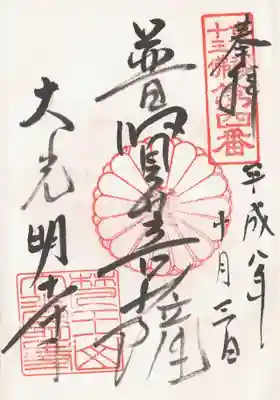 奉拝
十三佛
第四番
平成八年
十月三日
普賢菩薩
大光明寺